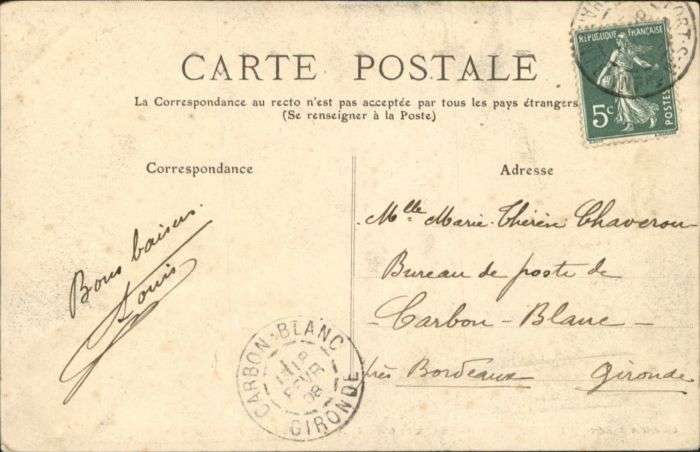 RÉPUBLIQUE FRANÇAISE
5c
POSTES
CARTE POSTALE
La Correspondance au recto n'est pas acceptée par tous les pays étrangers
(Se renseigner à la Poste)
Correspondance
Adresse
Bons baisers.
Louis
Mlle Marie-Thérèse Chaverou
Bureau de poste de
- Carbon-Blanc -
près Bordeaux Gironde
CARBON-BLANC
GIRONDE